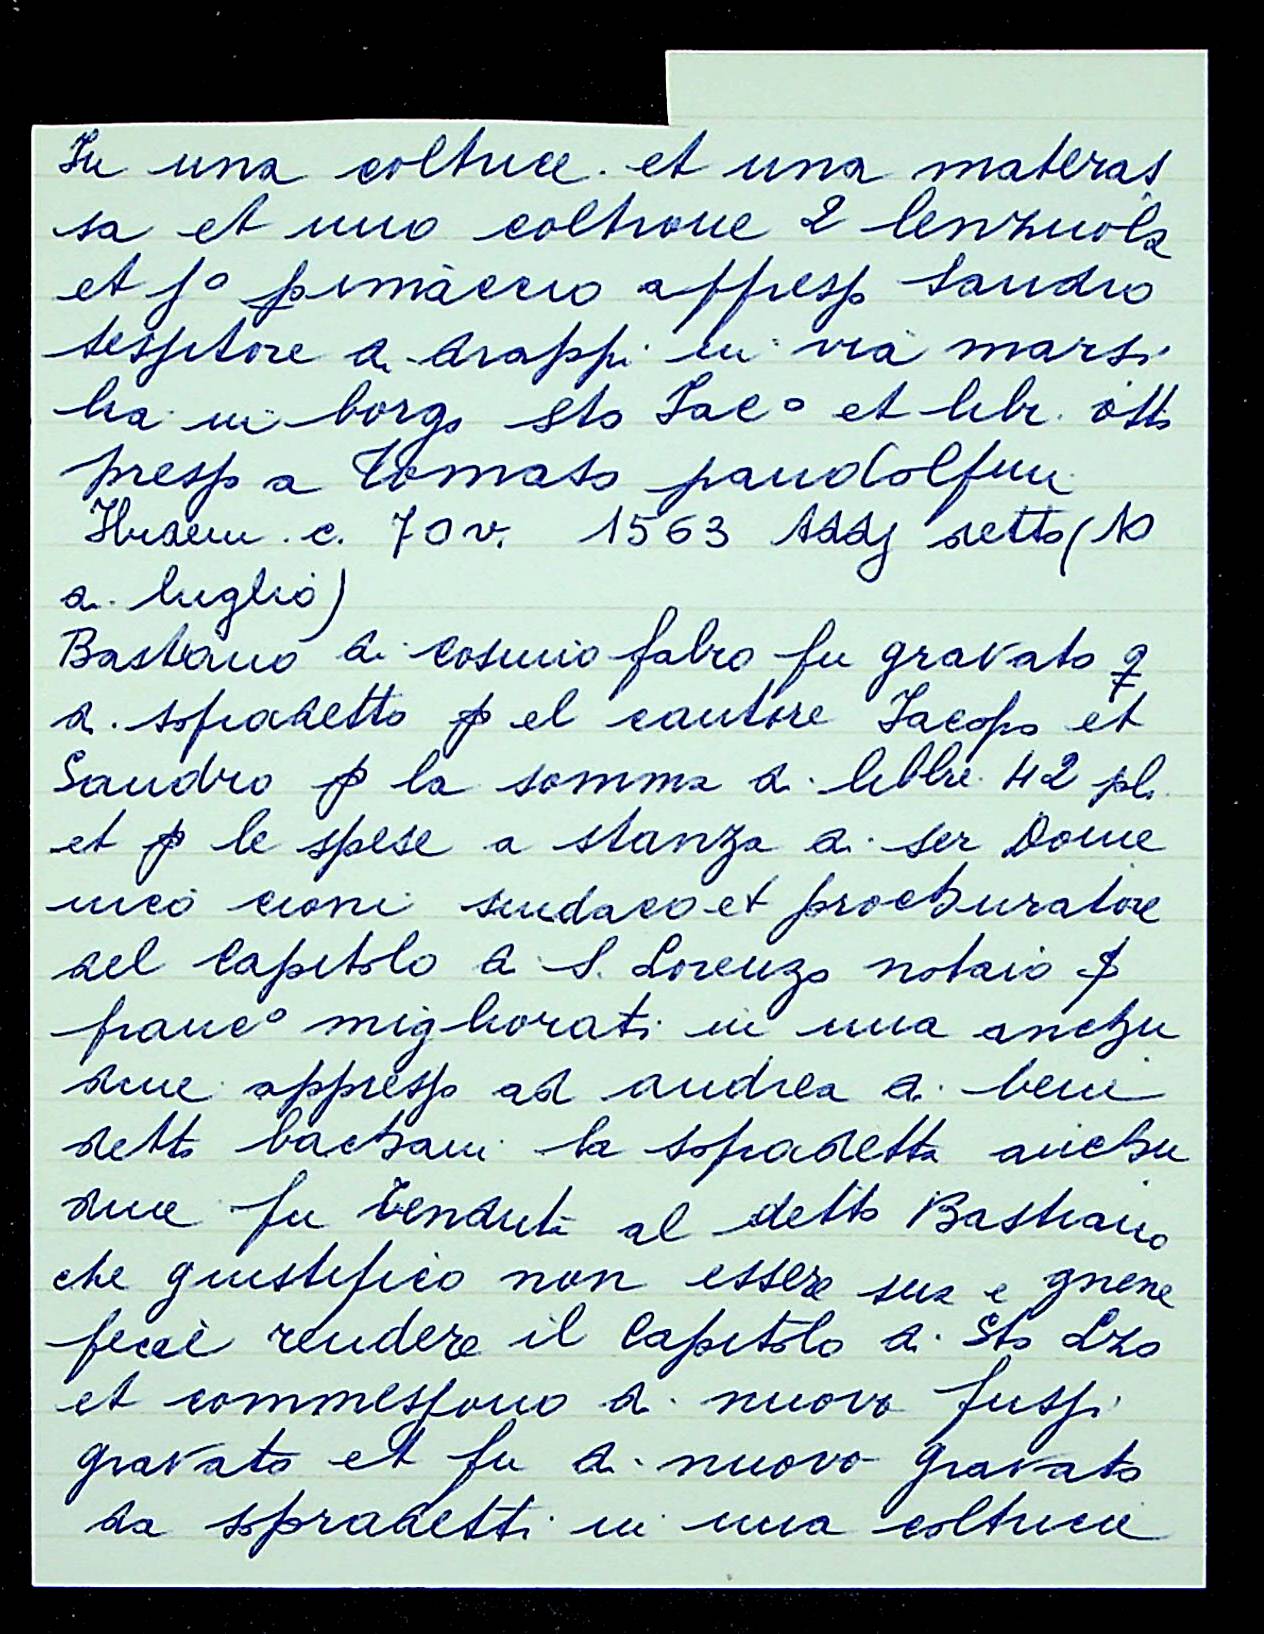 In una coltrice. et una materas
sa et uno coltrone 2 lenzuola
et jº pimaccio appresso Sandro
tessitore di drappi in via marsi
lia in borgo Sto Jacº et libr. otto
presso a tomaso pandolfini
Ibidem. c. 70 v. 1563 Addj detto (10
di luglio)
Bastiano di cosimo fabro fu gravato
di sopradetto p el cautore Jacopo et
Sandro p la somma di libbre 42 pli
et p le spese a stanza di ser Dome
nico cioni sindaco et prochuratore
del Capitolo di S. Lorenzo notaio
francº migliorati in una anchu
dine appresso ad andrea di beni
detto bachani la sopradetta anchu
dine fu venduta al detto Bastiano
che giustifico non essere sua e gnene
fecie rendere il Capitolo di Sto Lzo
et commessono di nuovo fussi
gravato et fu di nuovo gravato
da sopradetti in una coltricie